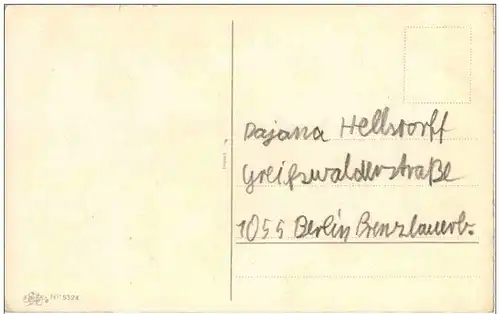 Dajana Hellsroff
Greifswalderstraße
1055 Berlin Prenzlauerb.
Nº 5324